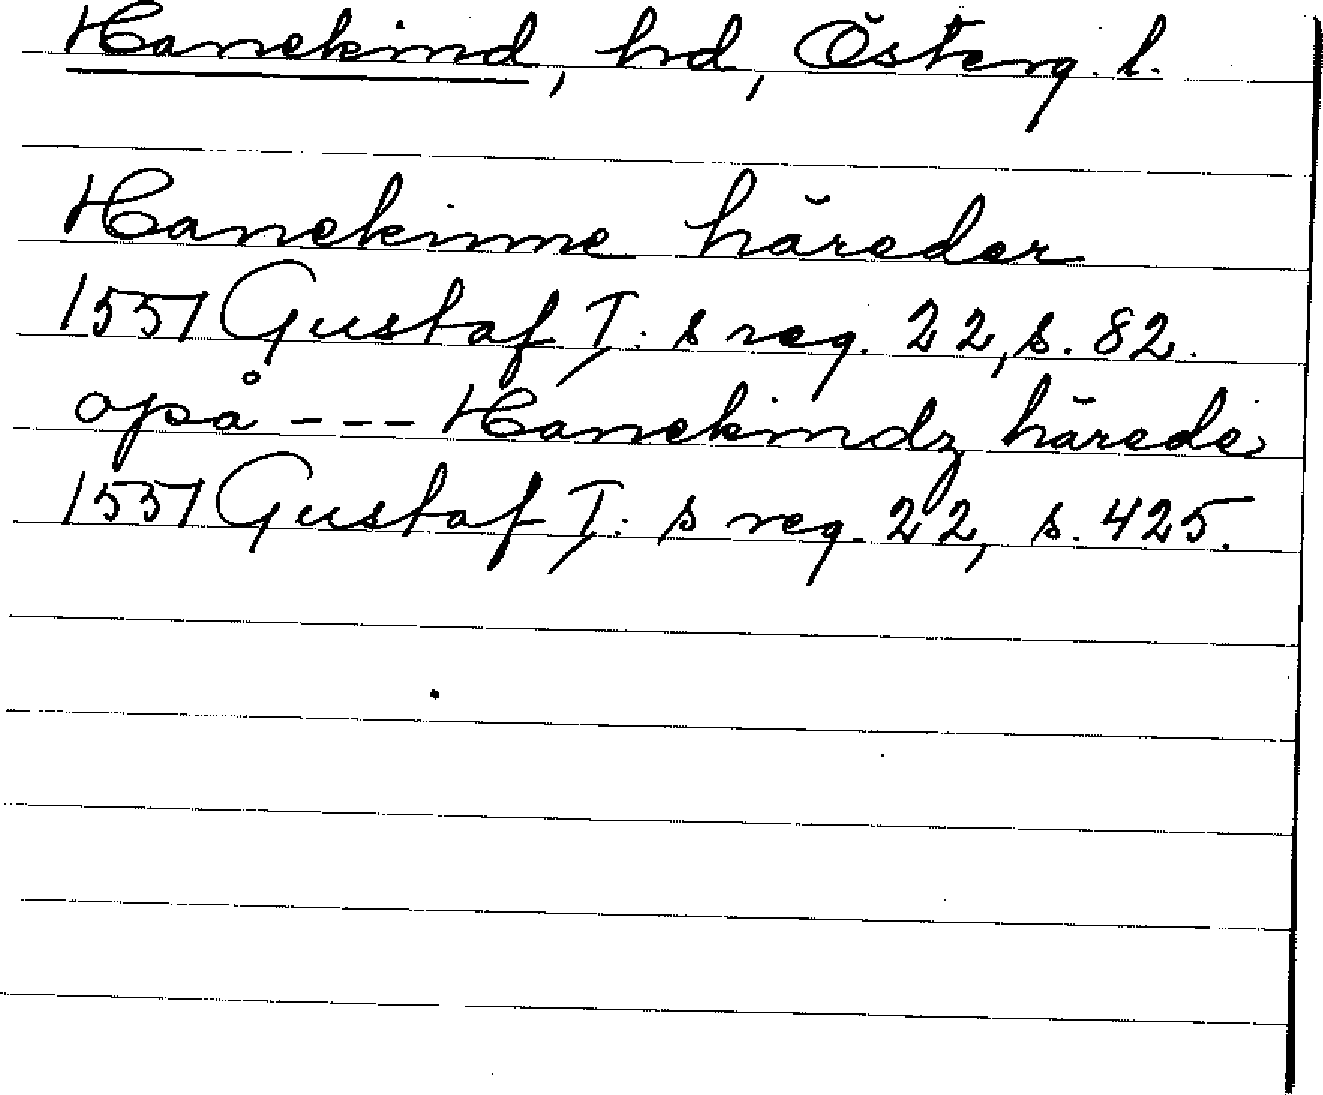 Hanekind, hd, Österg. l.
Hanekinne häreder
1551 Gustaf I: s reg. 22, s. 82.
opå --- Hanekindz härede
1551 Gustaf I: s reg. 22, s. 425.